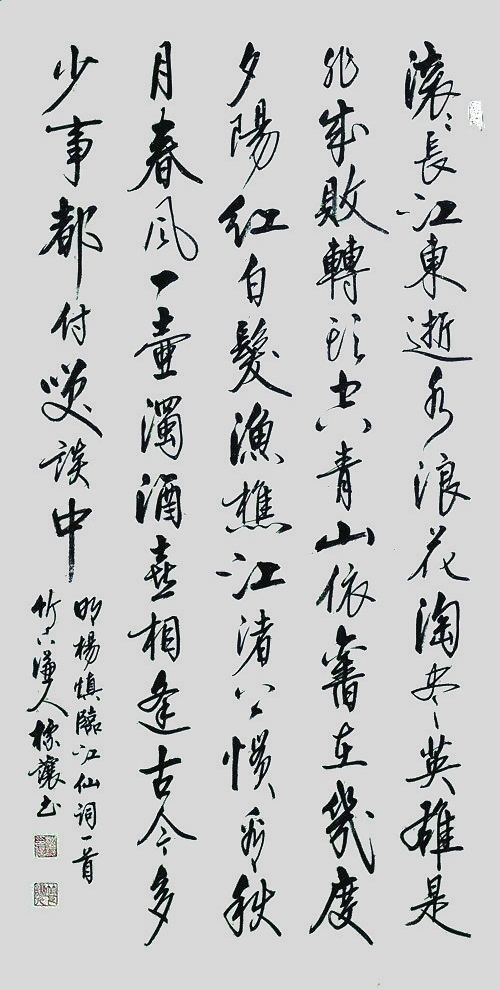 滚〻長江東逝水浪花淘尽英雄是
非成敗轉头空青山依舊在幾度
夕陽红白髮漁樵江渚上惯看秋
月春風一壷濁酒喜相逢古今多
少事都付笑談中
明楊慎臨江仙词一首
竹人书